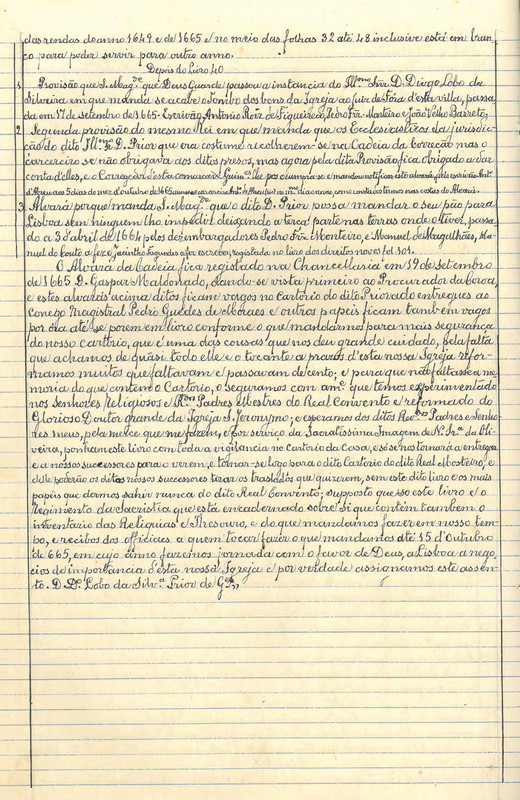 das rendas do anno 1649 e de 1665 e no meio das folhas 32 até 48 inclusive está em bran
co para poder servir para outro anno.
Depois do Livro 40
1 Provisão que S. Mag.de que Deus Guarde passou a instancia do Ill.mo Snr. D. Diogo Lobo da
Silveira em que manda se acabe o Tombo dos bens da Igreja ao juiz de Fóra d'esta villa, passa
da em 17 de setembro de 1665. Escrivão, Antonio Roiz de Figueiredo, Pedro Frz. Monteiro e João Velho Barreto.
2 Segunda provisão do mesmo Rei em que manda que os Ecclesiasticos da jurisdic
ção do dito Ill.mo D. Prior que era costume recolherem-se na Cadeia da Correcção mas o
carcereiro se não obrigava aos ditos presos, mas agora pela dita Provisão fica obrigado a dar
conta d'elles, e o Corregedor d'esta comarca de Guim.es lhe pos cumpra-se e mandou notificar
d'Abreu aos 5 dias do mez d'outubro de 1665
3 Alvará porque manda S. Mag.de que o dito D. Prior possa mandar o seu pão para
Lisboa sem ninguem lho impedir deixando a terça parte nas terras onde o tiver, passa
do a 3 d'abril de 1664 pelos dezembargadores Pedro Frz. Monteiro, e Manuel de Magalhães, Ma
nuel do Couto a fez e Jacintho Fagundes a fez escrever, registada no livro dos direitos novos fol. 101.
O Alvará da Cadeia fica registado na Chancellaria em 19 de setembro
de 1665 D. Gaspar Maldonado, dando-se vista primeiro ao Procurador da Coroa,
e estes alvarás acima ditos ficam vagos no Cartorio do dito Priorado entregues ao
Conego Magistral Pedro Guedes de Moraes e outros papeis ficam tambem vagos
por óra até se porem em livro conforme o que mandarmos para mais segurança
do nosso cartorio, que é uma das cousas que nos deu grande cuidado, pela falta
que achamos de quasi todo elle e o tocante a provas d'esta nossa Igreja refor-
mamos muitos que faltavam e passavam de cento; e para que não faltasse a me
moria do que contem o Cartorio, o seguramos com am.e que temos experimentado
nos Senhores religiosos e R.dos Padres Mestres do Real Convento e reformado do
Glorioso Doutor grande da Igreja S. Jeronymo; e esperamos dos ditos Rev.dos Padres e Senho
res meus, pela mercê que me fazem, e por serviço da Sacratissima Imagem de N. Sr.a da Oli-
veira, ponham este livro com toda a vigilancia no Cartorio da Casa, e só se nos tornará a entregar
e a nossos successores para o verem, e tornar-se logo para o dito Cartorio do dito Real Mosteiro, e
delle poderão os ditos nossos successores tirar os traslados que quizerem, sem este dito livro e os mais
papeis que dermos sahir nunca do dito Real Convento; supposto que só este livro e o
regimento da Sacristia que está encadernado sobre si que contém tambem o
inventario das Reliquias e Thesouro, e do que mandamos fazer em nosso tem-
po, e recibos dos officiaes a quem tocar fazer o que mandamos até 15 d'Outubro
de 665, em cujo anno fazemos jornada com o favor de Deus, a Lisboa a nego
cios de importancia d'esta nossa Igreja e por verdade assignamos este assen-
to. D. D.o Lobo da Silv.a Prior de G.es